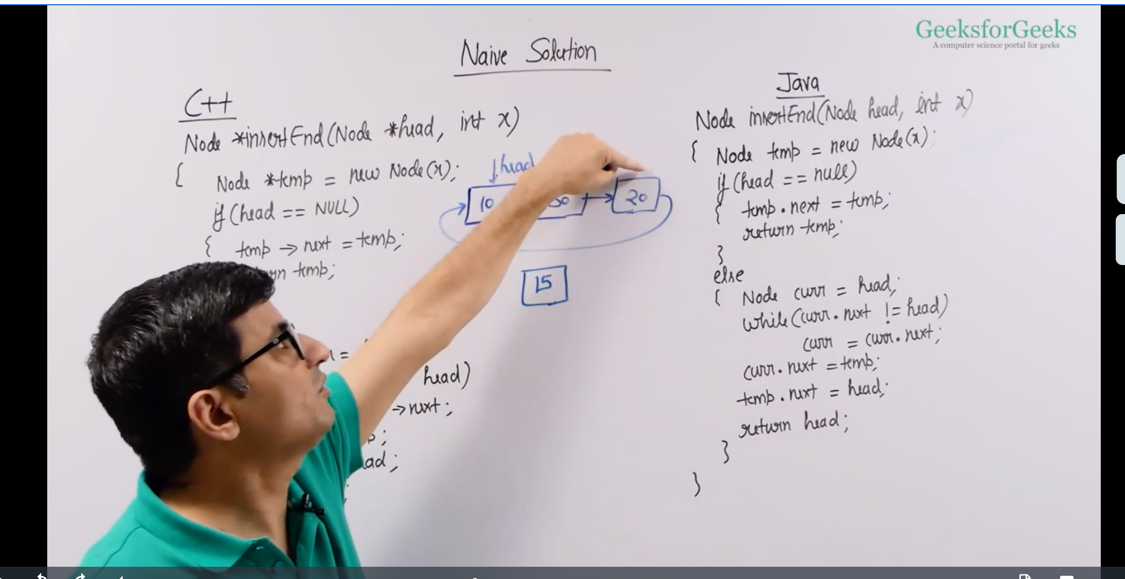 GeeksforGeeks
A computer science portal for geeks
Naive Solution
C++
Node *insertEnd(Node *head, int x)
{ Node *temp = new Node(x);
if (head == NULL)
{ temp → next = temp;
temp;
=
head)
→ next;
;
ad;
;
head
10 30 20
15
Java
Node insertEnd(Node head, int x)
{ Node temp = new Node(x);
if (head == null)
{ temp.next = temp;
return temp;
}
else
{ Node curr = head;
while (curr.next != head)
curr = curr.next;
curr.next = temp;
temp.next = head;
return head;
}
}